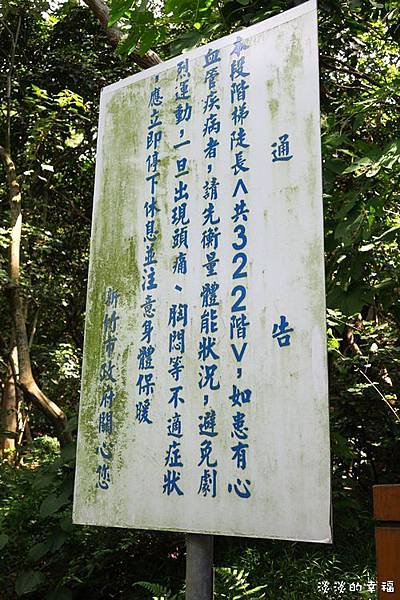 通告
本段階梯陡長＜共322階＞，如患有心
血管疾病者，請先衡量體能狀況，避免劇
烈運動，一旦出現頭痛、胸悶等不適症狀
，應立即停下休息並注意身體保暖
新竹市政府關心您
淡淡的幸福